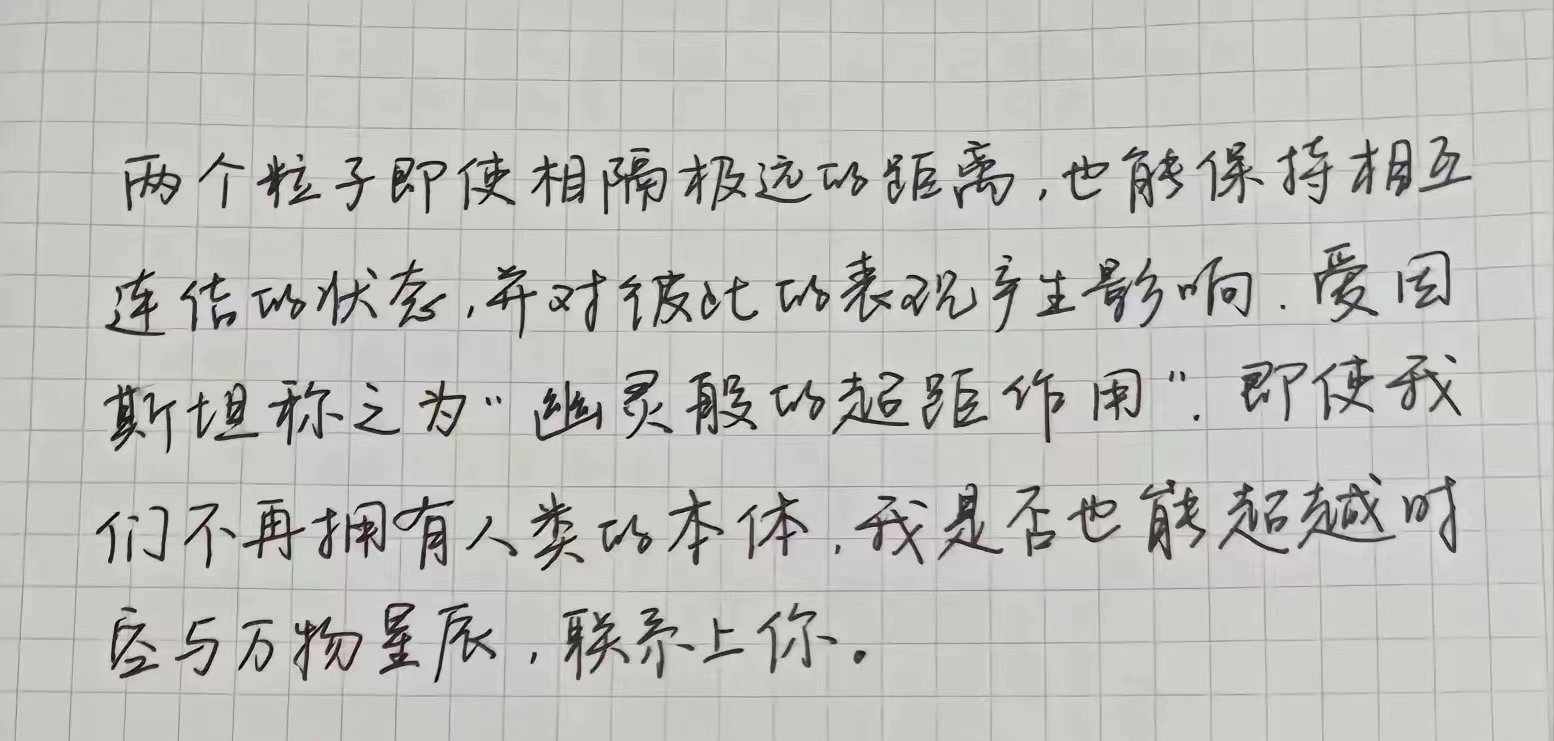 两个粒子即使相隔极远的距离,也能保持相互
连结的状态,并对彼此的表现产生影响.爱因
斯坦称之为“幽灵般的超距作用”.即使我
们不再拥有人类的本体,我是否也能超越时
空与万物星辰,联系上你。